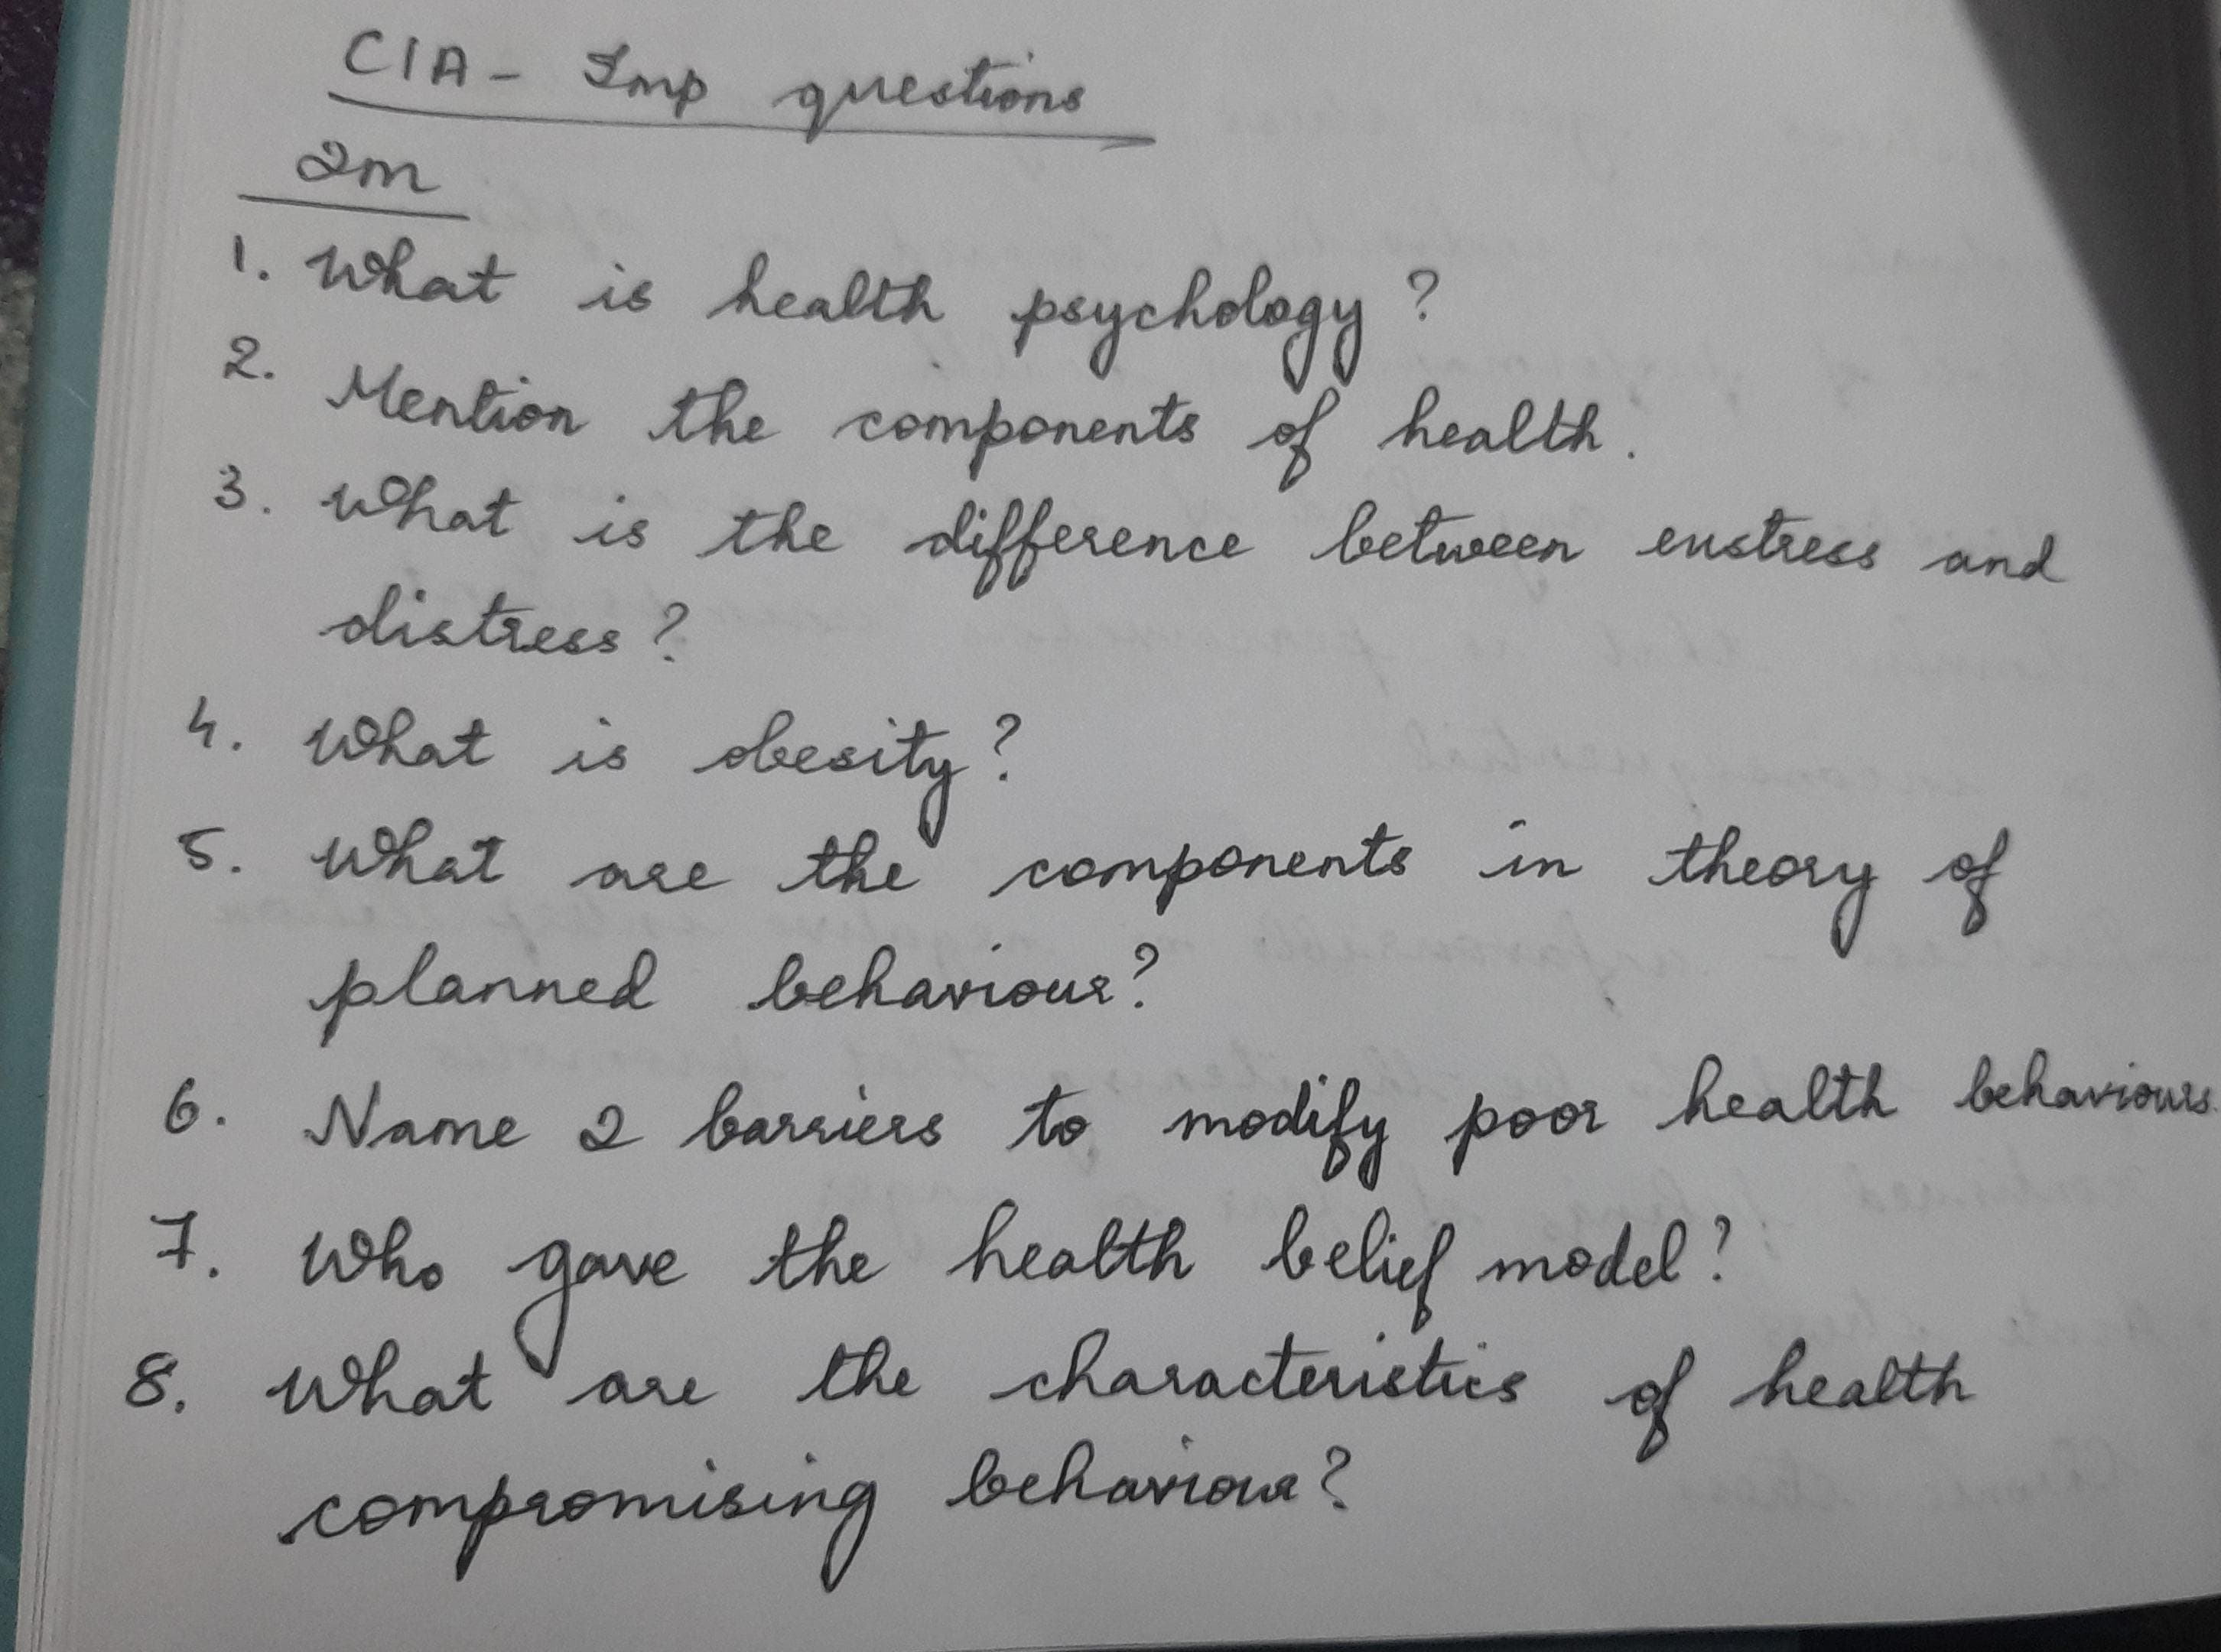 CIA - Imp questions
2m
1. What is health psychology?
2. Mention the components of health.
3. What is the difference between eustress and
distress?
4. What is obesity?
5. What are the components in theory of
planned behaviour?
6. Name 2 barriers to modify poor health behaviours.
7. Who gave the health belief model?
8. What are the characteristics of health
compromising behaviour?